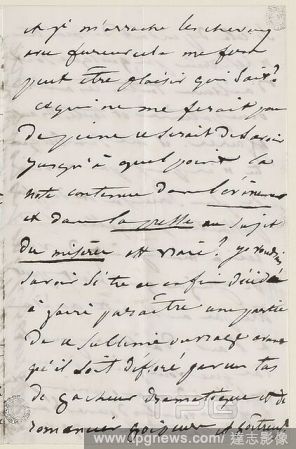 et je m'arrache les cheveux
avec fureur cela me fera
peut être plaisir qui sait?
ce qui ne me ferait pas
de peine ce serait de savoir
jusqu'à quel point la
note contenue dans l'évènement
et dans la presse au sujet
du misère est vraie? je voudrais
savoir si tu es enfin décidé
à faire paraître une partie
de ce sublime ouvrage avant
qu'il soit défloré par un tas
de gacheur dramatique et de
romancier et
www.tpgnews.com/達志影像